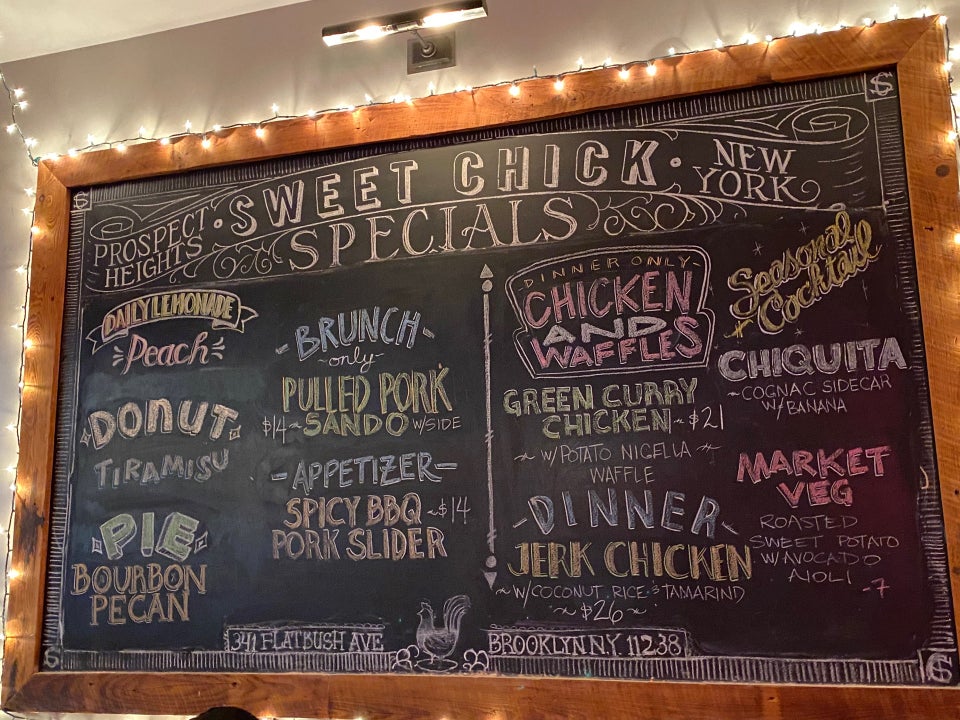 PROSPECT
HEIGHTS
• SWEET CHICK •
SPECIALS
NEW
YORK
DAILY LEMONADE
Peach
DONUT
TIRAMISU
PIE
BOURBON
PECAN
BRUNCH
only
PULLED PORK
$14 ~ SANDO W/SIDE
-APPETIZER-
SPICY BBQ ~$14
PORK SLIDER
DINNER ONLY
CHICKEN
AND
WAFFLES
GREEN CURRY
CHICKEN ~ $21
~ W/POTATO NIGELLA ~
WAFFLE
-DINNER-
JERK CHICKEN
~ W/COCONUT RICE & TAMARIND
~ $26 ~
Seasonal
Cocktail
CHIQUITA
~COGNAC SIDECAR
W/BANANA
MARKET
VEG
ROASTED
SWEET POTATO
W/AVOCADO
AIOLI
-7
341 FLATBUSH AVE
BROOKLYN N.Y. 11238